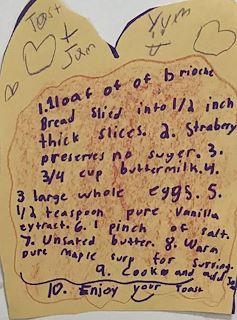 Toast
+
Jam
Yum
!!
1. 1 loaf of of brioche
Bread Slied into 1/2 inch
thick slices. 2. Strabery
preserves no suger. 3.
3/4 cup buttermilk. 4.
3 large whole eggs. 5.
1/2 teaspoon pure Vanilla
extract. 6. 1 pinch of salt.
7. Unsated butter. 8. Warm
pure maple surp for surving.
9. Cook and add
10. Enjoy your toast